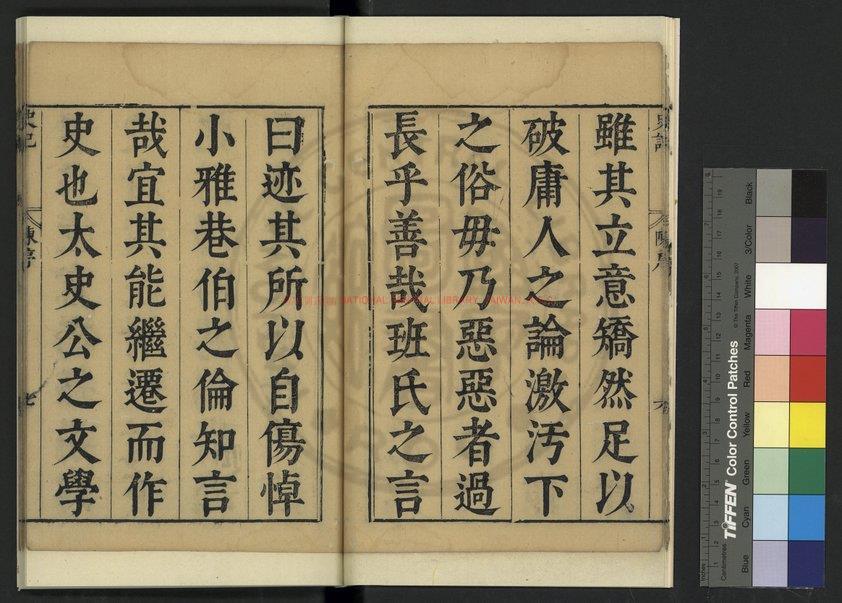 雖其立意矯然足以
破庸人之論激汚下
之俗毋乃惡惡者過
長乎善哉班氏之言
曰迹其所以自傷悼
小雅巷伯之倫知言
哉宜其能繼遷而作
史也太史公之文學
NATIONAL CENTRAL LIBRARY, TAIWAN
TIFFEN Color Control Patches
© The Tiffen Company, 2007
Inches
Centimetres
Blue
Cyan
Green
Yellow
Red
Magenta
White
3/Color
Black